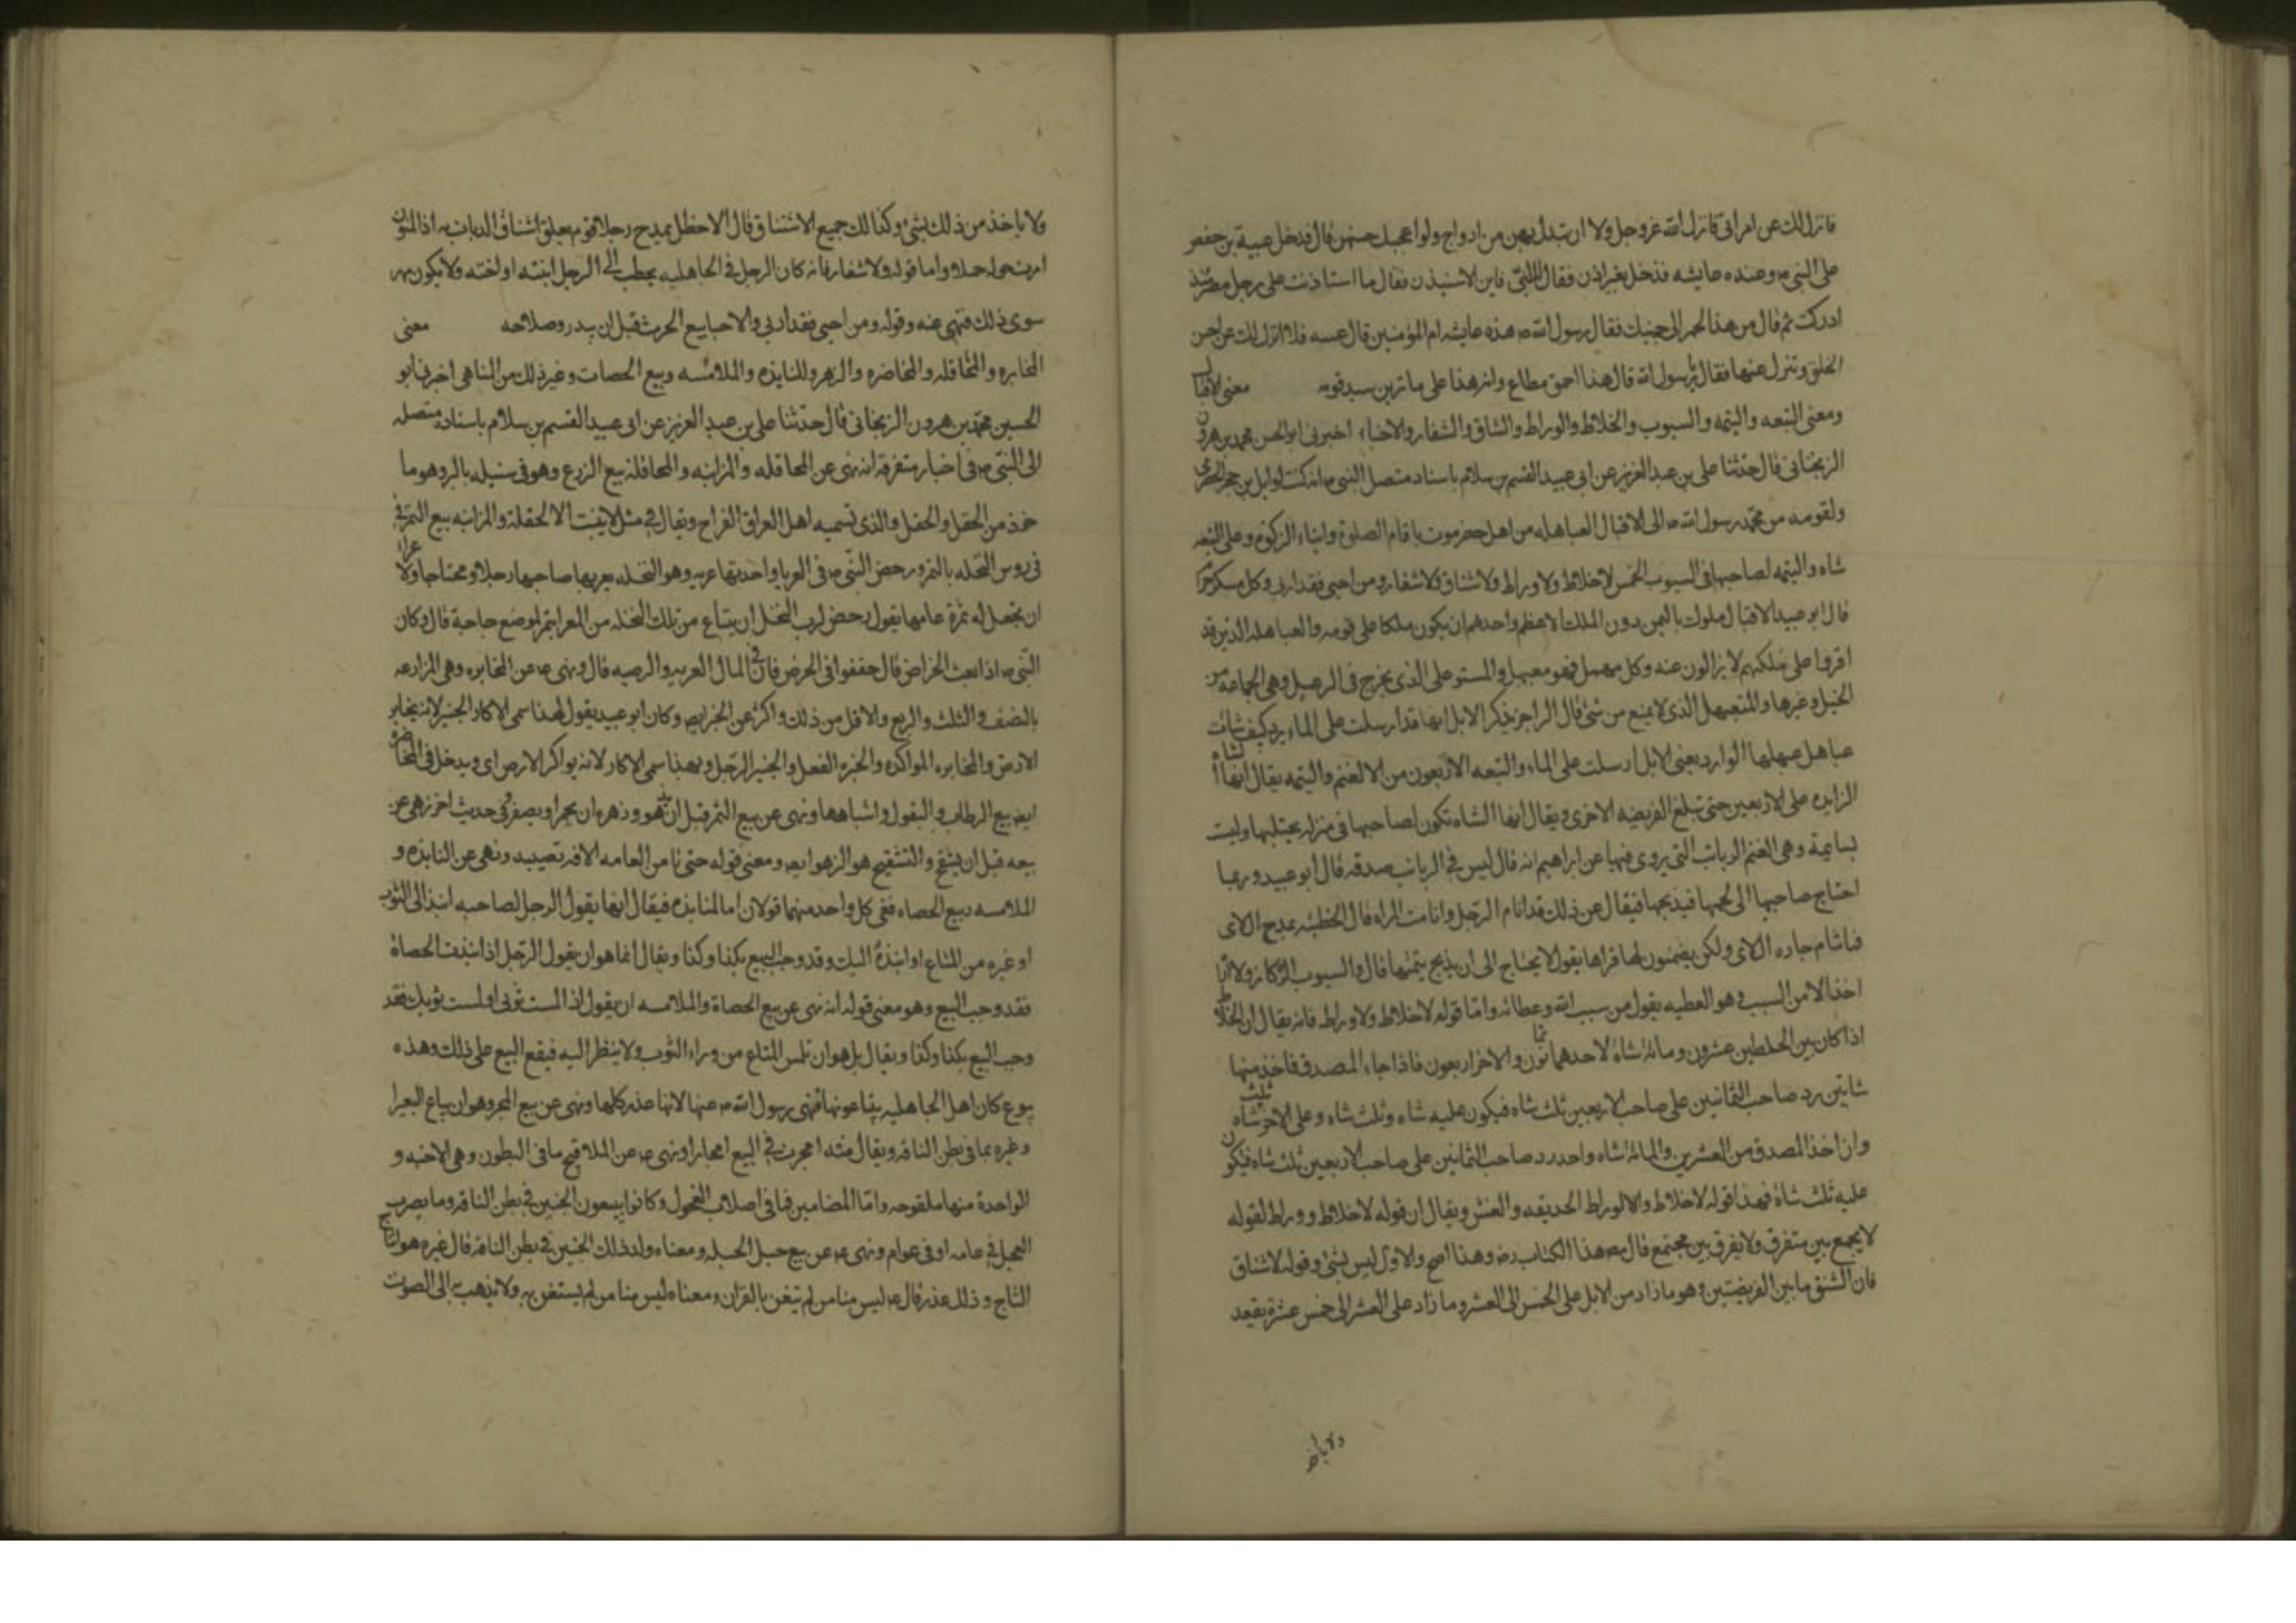 فانزل لك عن امراتى فانزل الله عزوجل ولا ان تبدل بهن من ازواج ولو اعجبك حسنهن قال فدخل عيينة بن حفص
على النبى ص وعنده عايشه فدخل بغير اذن فقال النبى فاين الاستيذن فقال ما استاذنت على رجل مضر منذ
ادركت ثم قال من هذا الحمر الى جنبك فقال رسول الله ص هذه عايشه ام المؤمنين قال عيينه فلا انزل لك عن احسن
الخلق وتنزل عنها فقال رسول الله قال هذا احمق مطاع وانه هذا على ما ترين سيد قومه معنى الاقيال
ومعنى التبعه والتيمه والسيوب والخلاط والوراط والشناق والشغار والاجباء اخبرنى ابو الحسن محمد بن هرون
الزنجانى قال حدثنا على بن عبد العزيز عن ابى عبيد القسم بن سلام باسناد متصل النبى ص انه كتب لوايل بن حجر الحضرمى
ولقومه من محمد رسول الله ص الى الاقيال العباهله من اهل حضرموت باقام الصلوة وايتاء الزكوة وعلى التبعه
شاه والتيمه لصاحبها فى السيوب الخمس لا خلاط ولا وراط ولا شناق ولا شغار ومن اجبى فقد اربى وكل مسكر حرام
قال ابو عبيد الاقيال ملوك باليمن دون الملك الاعظم واحدهم ان يكون ملكا على قومه والعباهله الذين قد
اقروا على ملكهم لا يزالون عنه وكل مهمل فهو معبهل والمستوعلى الذى يخرج فى الرعيل وهى الجماعة من
الخيل وغيرها والمتعبهل الذى لا يمنع من شى قال الراجز يذكر الابل انها قد ارسلت على الماء ترد كيف شائت
عباهل عبهلها الوارد يعنى الابل ارسلت على الماء والتبعه الاربعون من الالغنم والتيمه يقال انها الشاة
الزايده على الاربعين حتى تبلغ الفريضه الاخرى ويقال انها الشاه تكون لصاحبها فى منزله يحتلبها وليت
بسايمة وهى الغنم الربائب التى يروى فيها عن ابراهيم انه قال ليس فى الربائب صدقه قال ابو عبيد وربما
احتاج صاحبها الى لحمها فيذبحها فيقال عن ذلك قد اتام الرجل واتامت المراه قال الحطيئه يمدح ال لاى
فما تتام جاره ال لاى ولكن يضمنون لها قراها يقول لا يحتاج الى ان يذبح يتمتها قال والسيوب الركاز ولا اراه
اخذ الا من السيب وهو العطيه يقول من سيب الله وعطائه واما قوله لا خلاط ولا وراط فانه يقال ان الخلاط
اذا كان بين الخلطين عشرون ومائة شاة لاحدهما ثمانون والاخر اربعون فاذا جاء المصدق فاخذ منها
شاتين رد صاحب الثمانين على صاحب الاربعين ثلث شاه فيكون عليه شاه وثلث شاه وعلى الاخر ثلث شاه
وان اخذ المصدق من العشرين والمائة شاه واحدد رد صاحب الثمانين على صاحب الاربعين ثلث شاه فيكون
عليه ثلث شاة فهذا قوله لا خلاط والالوراط الخديعه والغش ويقال ان قوله لا خلاط ووراط لقوله
لا يجمع بين متفرق ولا يفرق بين مجتمع قال مصـ هذا الكتاب رضـ وهذا اصح والاول ليس بشئ وقوله لا شناق
فان الشنق ما بين الفريضتين وهو ما زاد من الابل على الخمس الى العشر وما زاد على العشر الى خمس عشرة يقعد
ولا ياخذ
ولا ياخذ من ذلك بشئ وكذلك جميع الاشناق قال الاخطل يمدح رجلا قوم يعلق اشناق الديات به اذا المئون
امرت حوله حملا واما قوله ولا شغار فانه كان الرجل فى الجاهليه يخطب الى الرجل ابنته او اخته ولا يكون مهر
سوى ذلك فنهى عنه وقوله ومن اجبى فقد اربى والاجبا بيع الحرث قبل ان يبدو صلاحه معنى
المخابره والمحاقله والمخاضره والزهر وللنابذه والملامسه وبيع الحصات وغير ذلك من المناهى اخبرنا ابو
الحسين محمد بن هرون الزنجانى قال حدثنا على بن عبد العزيز عن ابى عبيد القسم بن سلام باسناده متصله
الى النبى ص فى اخبار متفرقه انه نهى عن المحاقله والمزابنه والمحاقلة بيع الزرع وهو فى سنبله بالبر وهو ما
خوذ من الحقل والحقل والذى تسميه اهل العراق القراح ويقال فى مثل لا ينبت الا الحقلة والمزابنه بيع التمر فى
فى روس النخله بالتمر ورخص النبى ص فى العربا واحدتها عريه وهو النخله يعريها صاحبها رجلا ومحتاجا ولاعراء
ان يجعل له ثمرة عامها يقول رخص لرب النخل ان يبتاع من تلك النخله من المعرا بتمر لموضع حاجة قال وكان
النبى ص اذا بعث الخراص قال خففوا فى الخرص فان فى المال العريه والوصيه قال ونهى ع عن المخابره وهى المزارعه
بالنصف والثلث والربع والاقل من ذلك واكثر عن الخبر ايضا وكان ابو عبيد يقول لهذا سمى الاكار الخبير لانه يخابر
الارض والمخابره المواكره والخبره الفعل والخبير الرجل وبهذا سمى الاكار لانه يواكر الارض اى ويدخل فى المخاضره
ايضا بيع الرطاب والبقول واشباهها ونهى عن بيع التمر قبل ان يزهو وزهوه ان يحمر او يصفر وفى حديث اخر نهى عن
بيعه قبل ان يشقح والتشقيح هو الزهو ايضا ومعنى قوله حتى تامن العامه الافه تصيبه ونهى عن المنابذه و
الملامسه وبيع الحصاه ففى كل واحد منهما قولان اما المنابذه فيقال انها يقول الرجل لصاحبه انبذ الى الثوب
او غيره من المتاع او انبذه اليك وقد وجب البيع بكذا وكذا ويقال انما هو ان يقول الرجل اذا نبذت الحصاة
فقد وجب البيع وهو معنى قوله انه نهى عن بيع الحصاة والملامسه ان يقول اذا لمست ثوبى او لمست ثوبك فقد
وجب البيع بكذا وكذا ويقال بل هو ان تلمس المتاع من وراء الثوب ولا ينظر اليه فيقع البيع على ذلك وهذه
بيوع كان اهل الجاهليه يتباعونها فنهى رسول الله ص عنها لانها غدر كلها ونهى عن بيع المجر وهو ان يباع البعير ا
وغيره بما فى بطن الناقه ويقال منه امجرت فى البيع امجارا ونهى ع عن الملاقيح ما فى البطون وهى الاجنه و
الواحدة منها ملقوحه واما المضامين فما فى اصلاب الفحول وكانوا يبيعون الجنين فى بطن الناقه وما يضرب
الفحل فى عامه او فى عوام ونهى ع عن بيع حبل الحبله ومعناه ولد ذلك الجنين فى بطن الناقه قال غيره هو انتاج
النتاج وذلك غدر قال ع ليس منا من لم يتغن بالقران ومعناه ليس منا من لم يستغن به ولا يذهب به الى الصوت